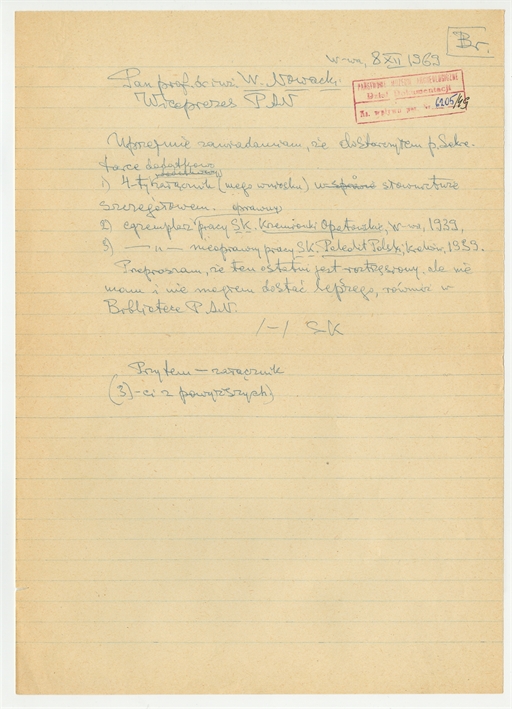 Br.
W-wa, 8 XII 1969
PAŃSTWOWE MUZEUM ARCHEOLOGICZNE
Dział Dokumentacji
Pan prof. dr inż. W. Nowacki
Wiceprezes PAN
Uprzejmie zawiadamiam, że dostarczyłem p. Sekre-
tarce dodatkowo
1) 4-ty załącznik (mego wniosku) w sprawie słownictwa
szczegółowem. oprawny
2) egzemplarz pracy S.K. Krzemionki Opatowskie, W-wa, 1939.
3) — „ — nieoprawny pracy S.K. Paleolit Polski, Kraków, 1939.
Przepraszam, że ten ostatni jest roztrzęsiony, ale nie
mam i nie mogłem dostać lepszego, również w
Bibliotece PAN.
/-/ SK
Przytem – załącznik
(3)-ci z powyższych)